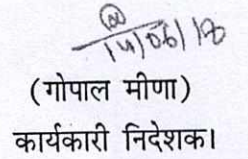 14/06/18
(गोपाल मीणा)
कार्यकारी निदेशक।